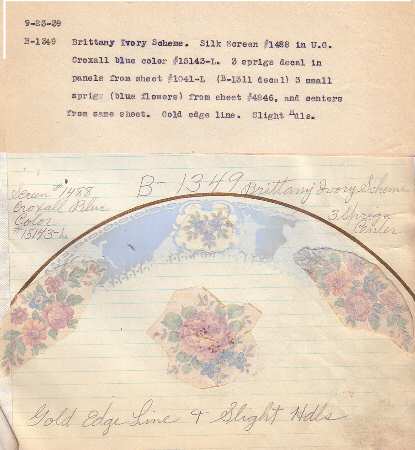 9-23-39
B-1349 Brittany Ivory Scheme. Silk Screen #1488 in U.G.
Croxall blue color #15143-L. 3 sprigs decal in
panels from sheet #1041-L (B-1311 decal) 3 small
sprigs (blue flowers) from sheet #4846, and centers
from same sheet. Gold edge line. Slight Hdls.
B-1349 Brittany Ivory Scheme
Screen #1488
Croxall Blue
Color
#15143-L
3
Center
Gold Edge Line & Slight Hdls